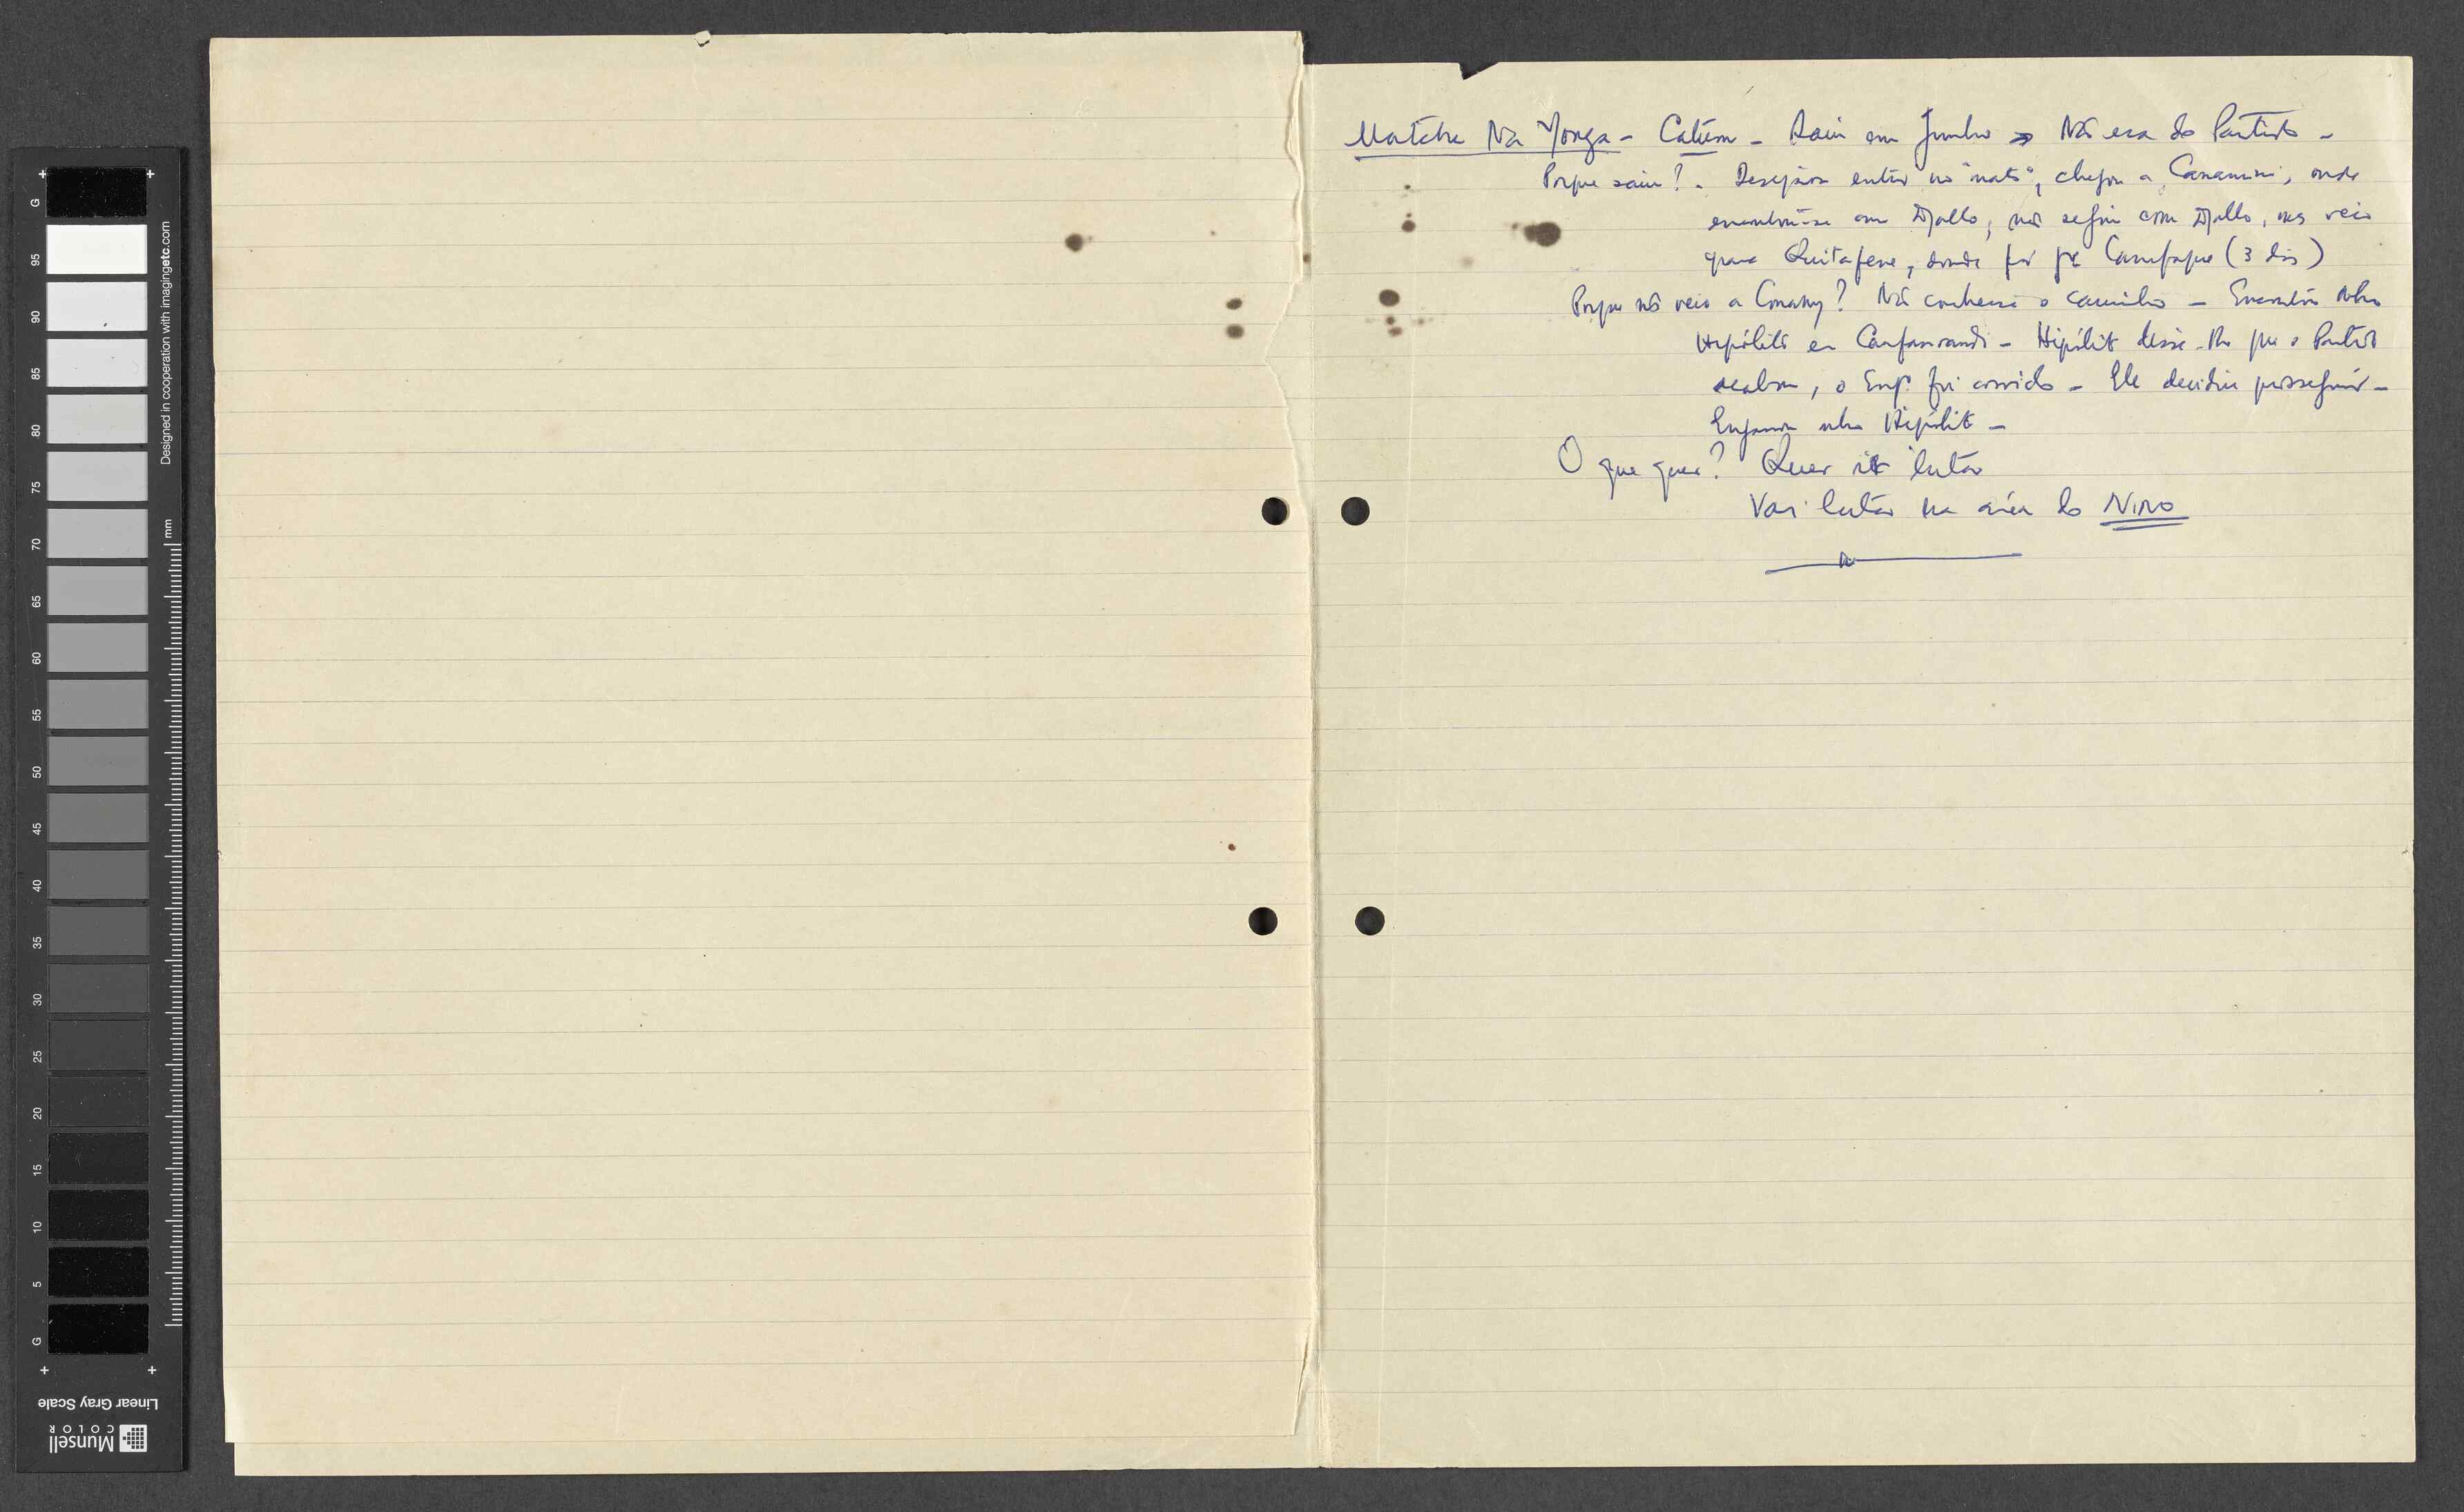 Matche Na Yonga - Catúm - Saiu em Junho → Não era do Partido -
Porque saiu? - Desejava entrar no "mato", chegou a Canamine, onde
encontrou-se com Djallo, não seguiu com Djallo, mas veio
para Quitafene, donde foi p.ª (3 dias)
Porque não veio a Conakry? Não conhecia o caminho - Encontrou nho
Hipólito em - Hipólito disse-lho que o Partido
acabou, o Eng.º foi corrido - Ele decidiu prosseguir -
Enganou nho Hipólito -
O que quer? Quer ir lutar
Vai lutar na área do NINO
G 95 90 85 80 75 70 65 60 55 50 45 40 35 30 25 20 15 10 5 G
Designed in cooperation with imagingetc.com
mm
Linear Gray Scale
Munsell
COLOR